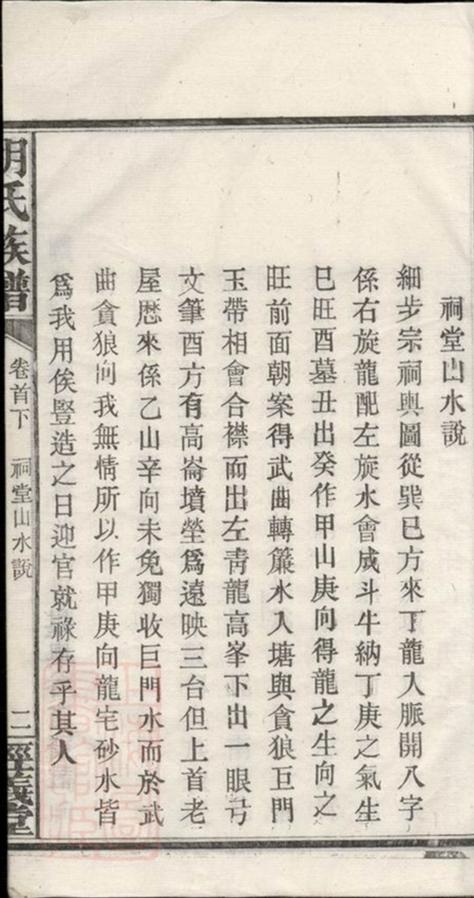 祠堂山水說
細步宗祠輿圖從巽巳方來丁龍入脈開八字
係右旋龍配左旋水會成斗牛納丁庚之氣生
巳旺酉墓丑出癸作甲山庚向得龍之生向之
旺前面朝案得武曲轉簾水入塘與貪狼巨門
玉帶相會合襟而出左靑龍高峯下出一眼弓
文筆酉方有高崙墳塋爲遠映三台但上首老
屋歴來係乙山辛向未免獨收巨門水而於武
曲貪狼向我無情所以作甲庚向龍宅砂水皆
爲我用俟豎造之日迎官就祿存乎其人
氏族譜
卷首下
祠堂山水說
二
堂